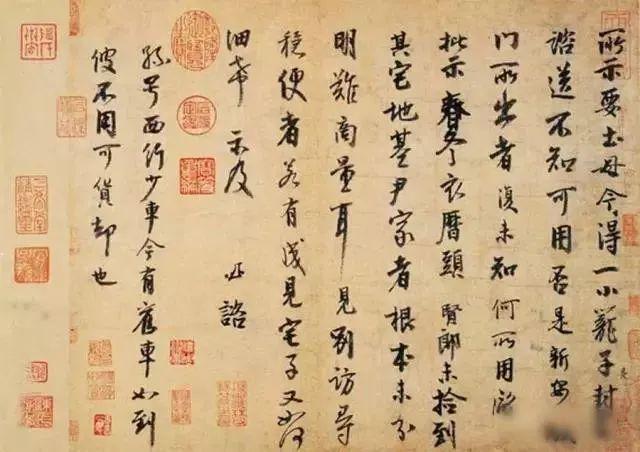 所示要土母今得一小籠子封
諮送不知可用否是新安
門所出者復未知何所用
批示春冬衣曆頭賢郎未拾到
其宅地基尹家者根本未分
明難商量耳見別訪尋
穩便者若有成見宅子又如何
細希示及諮
孫号西行少車今有舊車如到
彼不用可貨却也